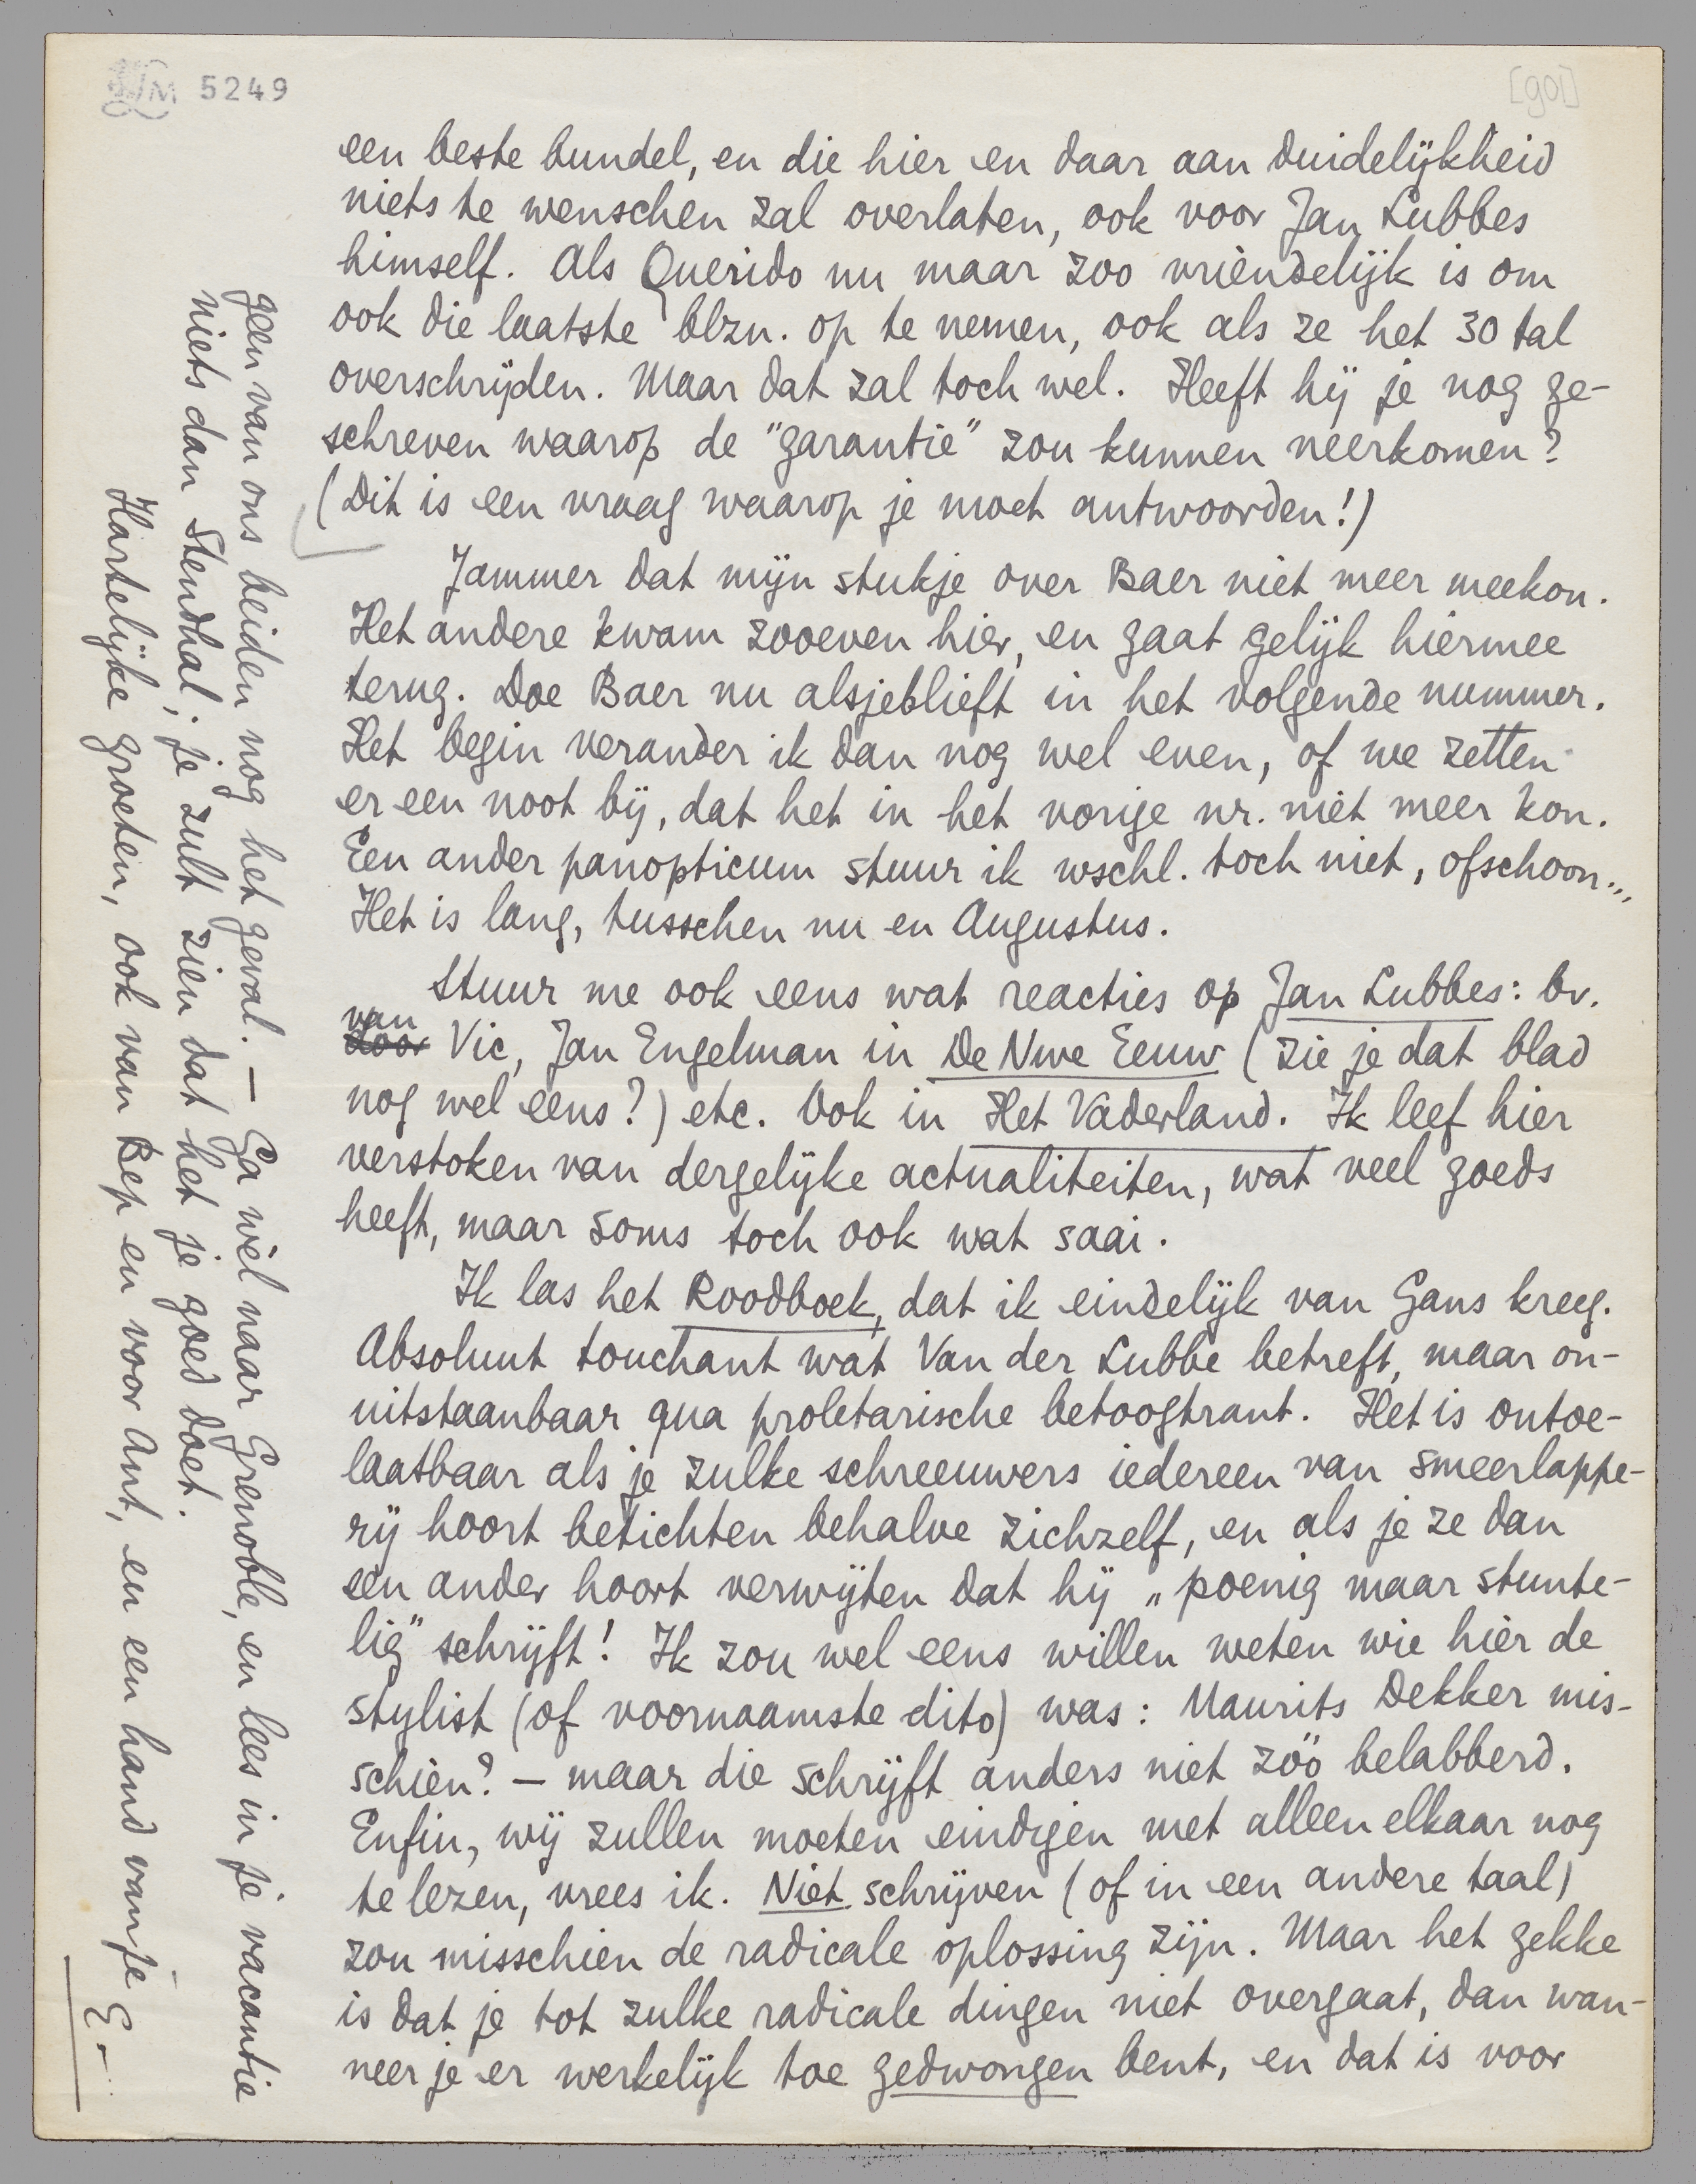 LM 5249
[901]
een beste bundel, en die hier en daar aan duidelijkheid
niets te wenschen zal overlaten, ook voor Jan Lubbes
himself. Als Querido nu maar zoo vriendelijk is om
ook die laatste blzn. op te nemen, ook als ze het 30 tal
overschrijden. Maar dat zal toch wel. Heeft hij je nog ge-
schreven waarop de "garantie" zou kunnen neerkomen?
(Dit is een vraag waarop je moet antwoorden!)
Jammer dat mijn stukje over Baer niet meer meekon.
Het andere kwam zooeven hier, en gaat gelijk hiermee
terug. Doe Baer nu alsjeblieft in het volgende nummer.
Het begin verander ik dan nog wel even, of we zetten
er een noot bij, dat het in het vorige nr. niet meer kon.
Een ander panopticum stuur ik wschl. toch niet, ofschoon...
Het is lang, tusschen nu en Augustus.
Stuur me ook eens wat reacties op Jan Lubbes: bv.
van
door Vic, Jan Engelman in De Nwe Eeuw (zie je dat blad
nog wel eens?) etc. Ook in Het Vaderland. Ik leef hier
verstoken van dergelijke actualiteiten, wat veel goeds
heeft, maar soms toch ook wat saai.
Ik las het Roodboek, dat ik eindelijk van Gans kreeg.
Absoluut touchant wat Van der Lubbe betreft, maar on-
uitstaanbaar qua proletarische betoogtrant. Het is ontoe-
laatbaar als je zulke schreeuwers iedereen van smeerlappe-
rij hoort betichten behalve zichzelf, en als je ze dan
een ander hoort verwijten dat hij „poenig maar stunte-
lig" schrijft! Ik zou wel eens willen weten wie hier de
stylist (of voornaamste dito) was: Maurits Dekker mis-
schien? — maar die schrijft anders niet zóó belabberd.
Enfin, wij zullen moeten eindigen met alleen elkaar nog
te lezen, vrees ik. Niet schrijven (of in een andere taal)
zou misschien de radicale oplossing zijn. Maar het gekke
is dat je tot zulke radicale dingen niet overgaat, dan wan-
neer je er werkelijk toe gedwongen bent, en dat is voor
geen van ons beiden nog het geval. — Ga wèl naar Grenoble, en lees in je vacantie
niets dan Stendhal; je zult zien dat het je goed doet.
Hartelijke groeten, ook van Bep en voor Ant, en een hand van je
E...